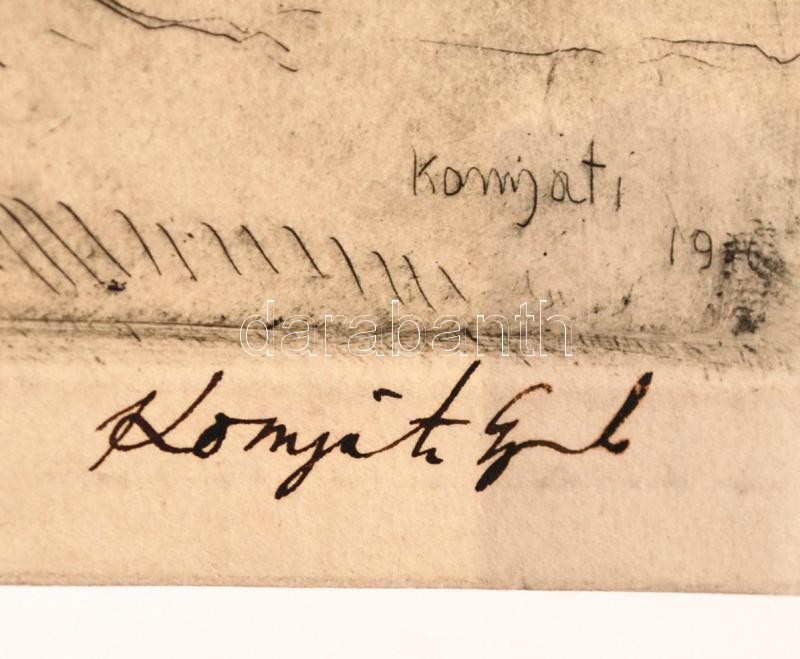 Komjati
19
darabanth
Komjáti